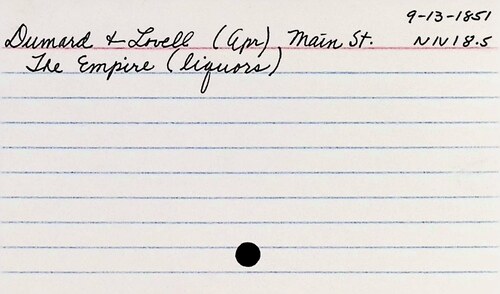 9-13-1851
Dumard & Lovell (Apr), Main St. NN18.5
The Empire (liquors)